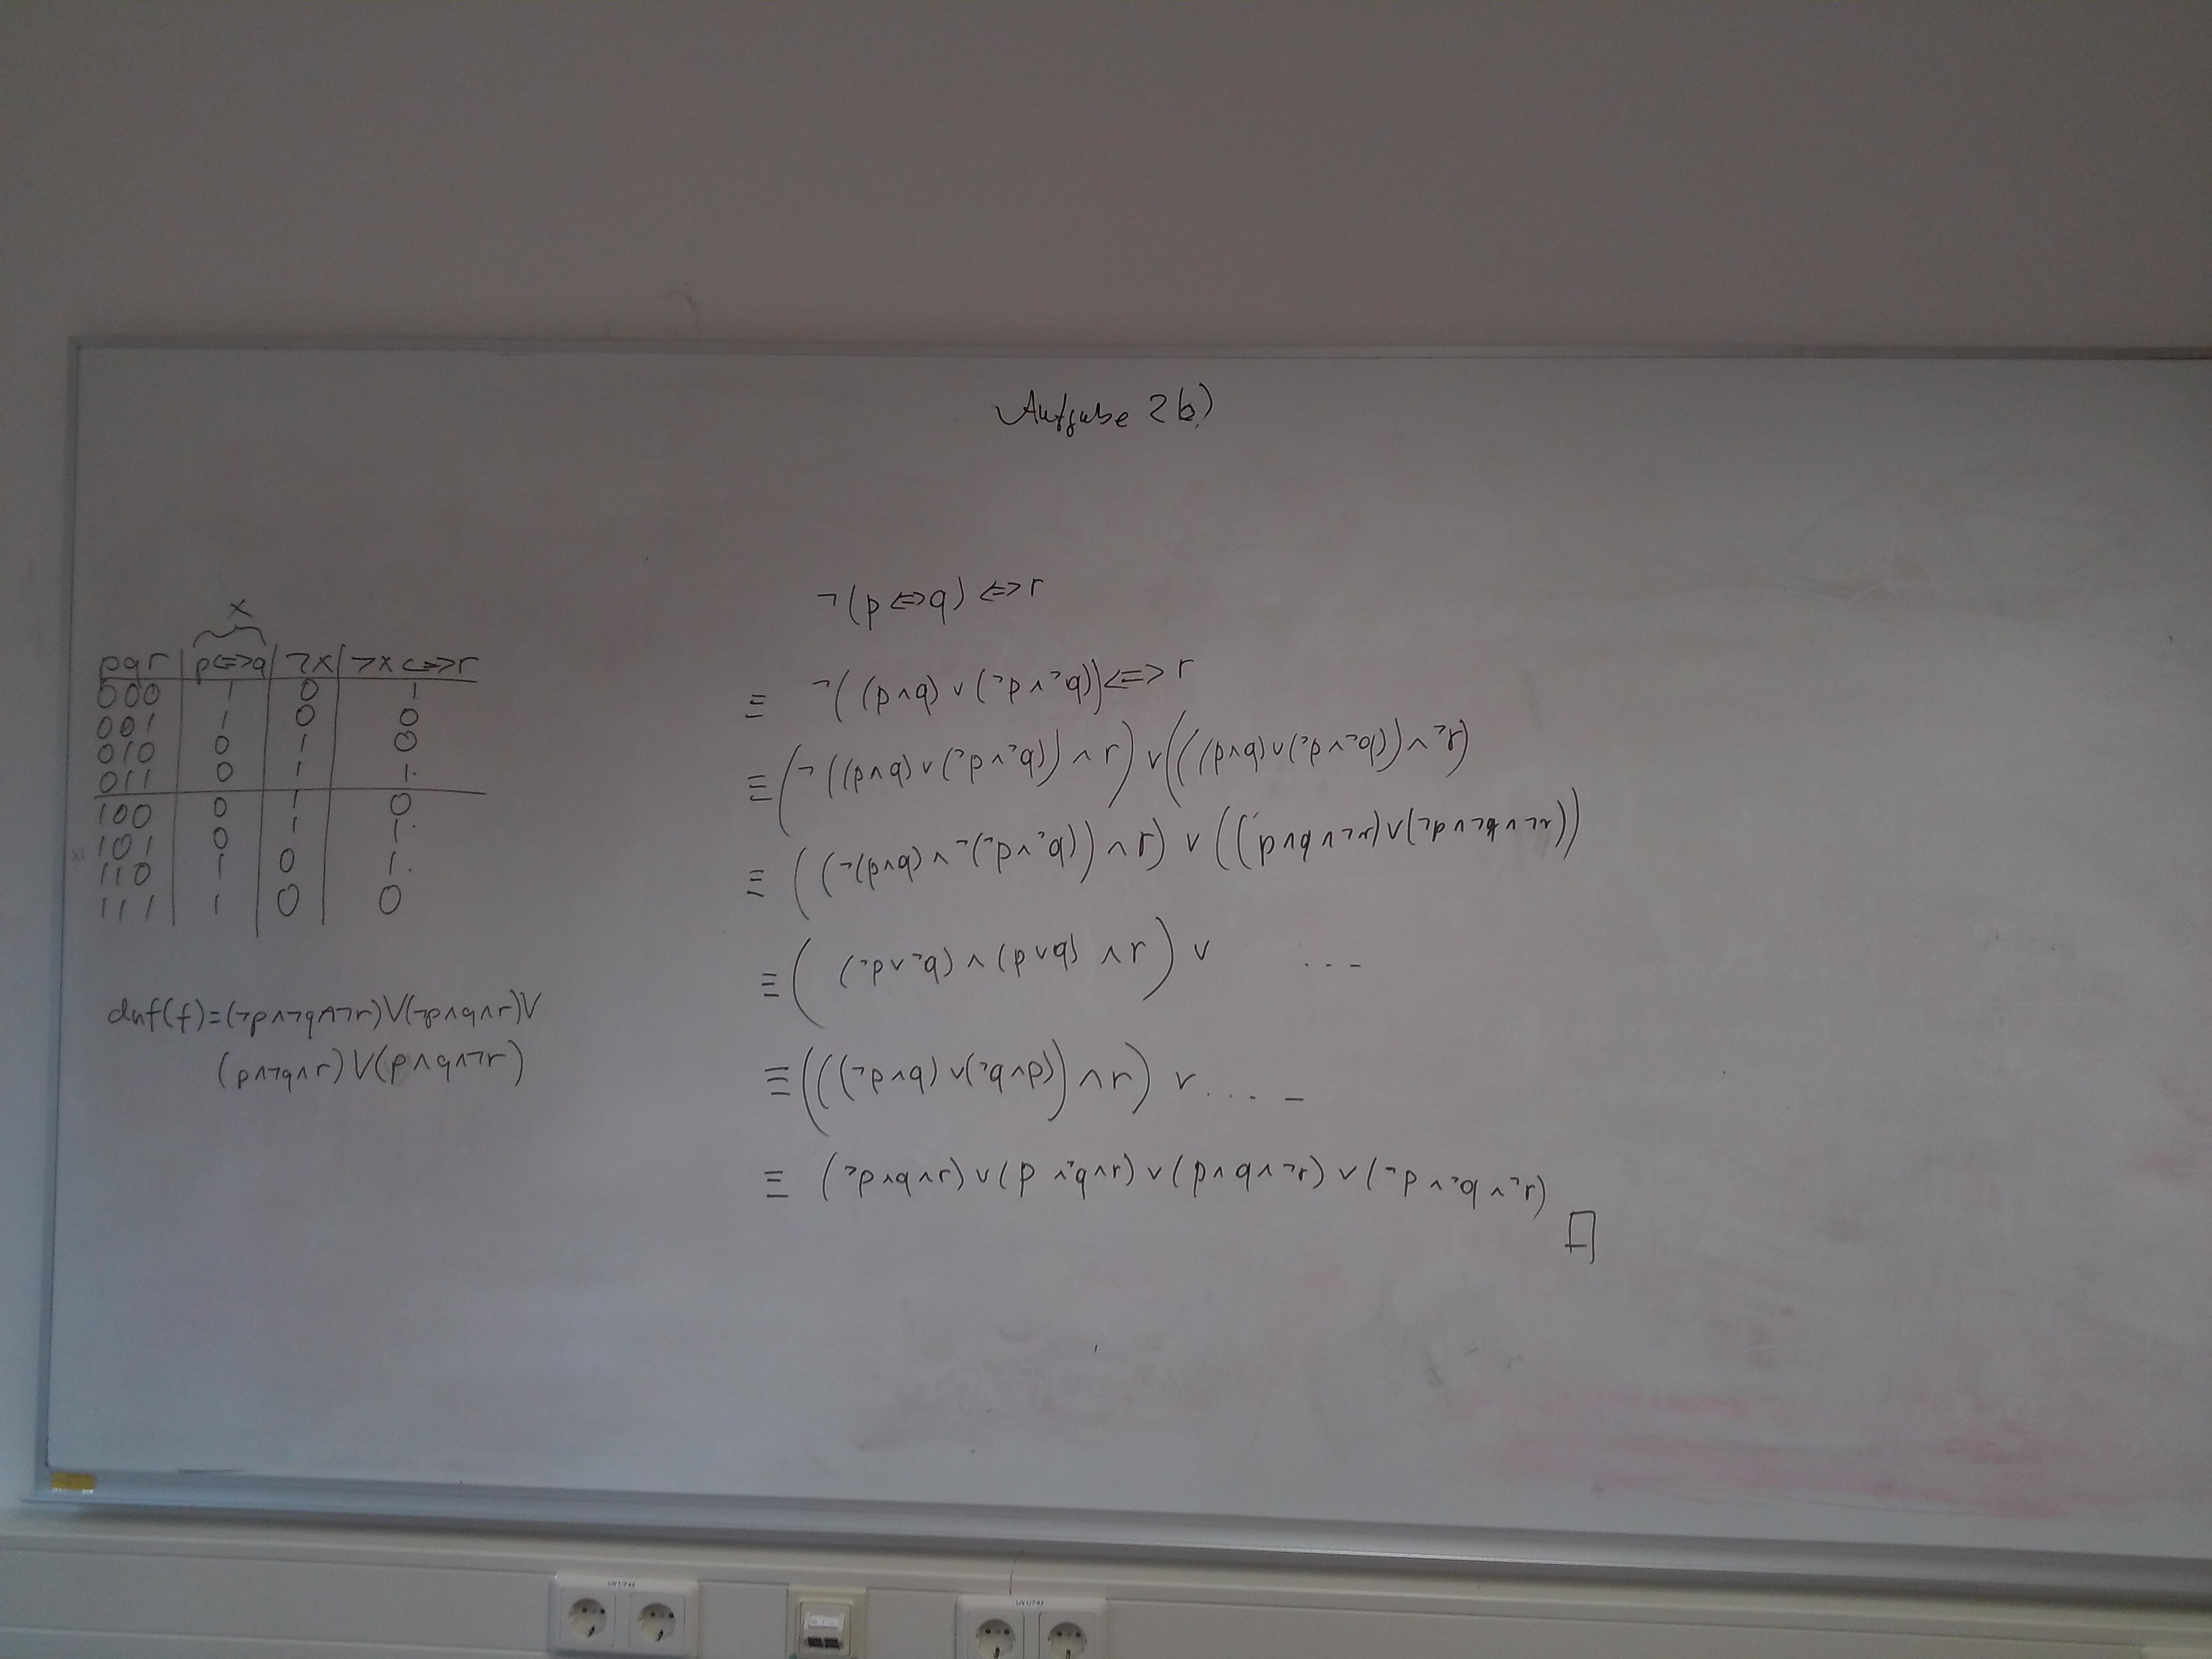 Aufgabe 2b)
x
pqr | p<=>q | ¬x | ¬x <=> r
000 | 1 | 0 | 1
001 | 1 | 0 | 0
010 | 0 | 1 | 0
011 | 0 | 1 | 1.
100 | 0 | 1 | 0
101 | 0 | 1 | 1.
110 | 1 | 0 | 1.
111 | 1 | 0 | 0
dnf(f)=(¬p∧¬q∧¬r)∨(¬p∧q∧r)∨
(p∧¬q∧r)∨(p∧q∧¬r)
¬(p<=>q) <=> r
≡ ¬((p∧q) ∨ (¬p∧¬q)) <=> r
≡ (¬((p∧q) ∨ (¬p∧¬q)) ∧ r) ∨ (((p∧q)∨(¬p∧¬q))∧¬r)
≡ ((¬(p∧q) ∧ ¬(¬p∧¬q)) ∧ r) ∨ ((p∧q∧¬r)∨(¬p∧¬q∧¬r))
≡ ( (¬p∨¬q) ∧ (p∨q) ∧ r ) ∨ ...
≡ (((¬p∧q) ∨(¬q∧p)) ∧ r) ∨ ....
≡ (¬p∧q∧r) ∨ (p∧¬q∧r) ∨ (p∧q∧¬r) ∨ (¬p∧¬q∧¬r)